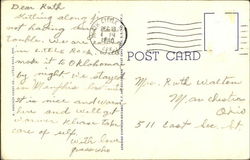 Dear Ruth
Getting along fine
not having any
trouble. We are
in Little Rock.
make it to Oklahoma
by night. We stayed
in Memphis last nite
It is nice and warm
here and will get
warmer. Please take
care of self.
With love
POST CARD
Mrs. Ruth Walton
Manchester
Ohio
511 East